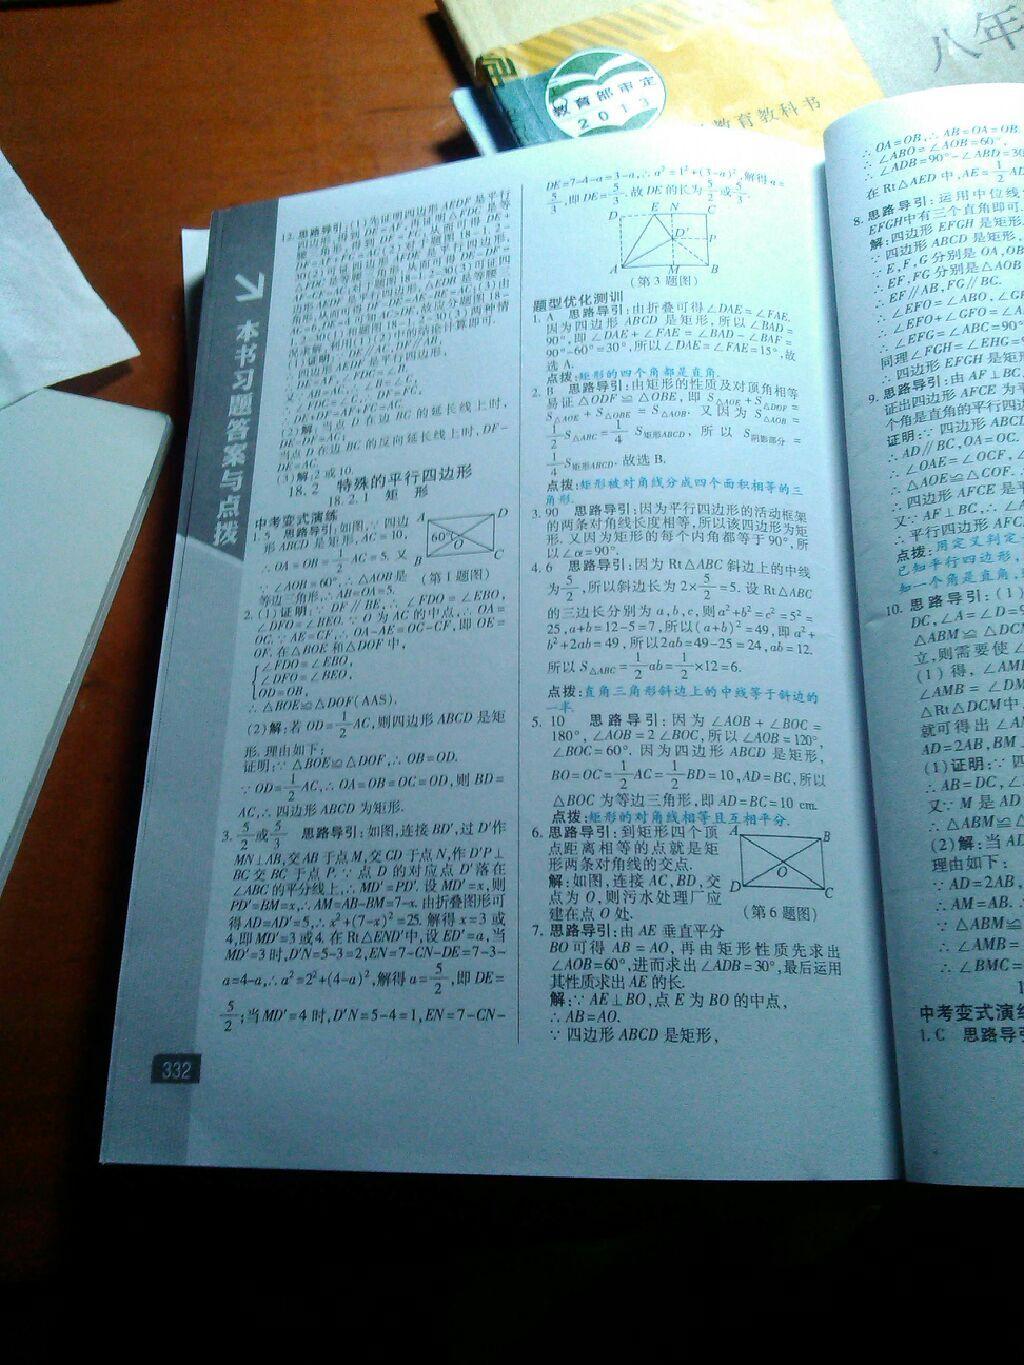 八年
教育部审定
2013
教育教科书
本书习题答案与点拨
12.思路导引:(1)先证明四边形AEDF是平行
(2)解:当点D在边BC的延长线上时,
DE-DF=AC;
当点D在边BC的反向延长线上时,DF-
DE=AC.
(3)解:2或10.
18.2 特殊的平行四边形
18.2.1 矩 形
中考变式演练
1.5 思路导引:如图,∵四边
形ABCD是矩形,AC=10,
∴OA=OB=1/2AC=5.又
∵∠AOB=60°,∴△AOB是
等边三角形,∴AB=OA=5.
A
D
60°
O
B
C
(第1题图)
2.(1)证明:∵DF∥BE,∴∠FDO=∠EBO,
∠DFO=∠BEO.∵O为AC的中点,∴OA=
OC.∵AE=CF,∴OA-AE=OC-CF,即OE=
OF.在△BOE和△DOF中,
∠FDO=∠EBO,
∠DFO=∠BEO,
OD=OB,
∴△BOE≌△DOF(AAS).
(2)解:若OD=1/2AC,则四边形ABCD是矩
形.理由如下:
证明:∵△BOE≌△DOF,∴OB=OD.
∵OD=1/2AC,∴OA=OB=OC=OD,则BD=
AC,∴四边形ABCD为矩形.
3.5/2或5/3 思路导引:如图,连接BD′,过D′作
MN⊥AB,交AB于点M,交CD于点N,作D′P⊥
BC交BC于点P.∵点D的对应点D′落在
∠ABC的平分线上,∴MD′=PD′.设MD′=x,则
PD′=BM=x,∴AM=AB-BM=7-x.由折叠图形可
得AD=AD′=5,∴x²+(7-x)²=25.解得x=3或
4,即MD′=3或4.在Rt△END′中,设ED′=a,当
MD′=3时,D′N=5-3=2,EN=7-CN-DE=7-3-
a=4-a,∴a²=2²+(4-a)²,解得a=5/2,即DE=
5/2;当MD′=4时,D″N=5-4=1,EN=7-CN-
332
DE=7-4-a=3-a,∴a²=1²+(3-a)²,解得a=
5/3,即DE=5/3.故DE的长为5/2或5/3.
D
E
N
C
D′
P
A
M
B
(第3题图)
题型优化测训
1.A 思路导引:由折叠可得∠DAE=∠FAE.
因为四边形ABCD是矩形,所以∠BAD=
90°,即∠DAE+∠FAE=∠BAD-∠BAF=
90°-60°=30°,所以∠DAE=∠FAE=15°,故
选A.
点拨:矩形的四个角都是直角.
2.B 思路导引:由矩形的性质及对顶角相等
易证△ODF≌△OBE,即S△AOE+S△DOF=
S△AOE+S△OBE=S△AOB.又因为S△AOB=
1/2S△ABC=1/4S矩形ABCD,所以S阴影部分=
1/4S矩形ABCD.故选B.
点拨:矩形被对角线分成四个面积相等的三
角形.
3.90 思路导引:因为平行四边形的活动框架
的两条对角线长度相等,所以该四边形为矩
形.又因为矩形的每个内角都等于90°,所
以∠α=90°.
4.6 思路导引:因为Rt△ABC斜边上的中线
为5/2,所以斜边长为2×5/2=5.设Rt△ABC
的三边长分别为a,b,c,则a²+b²=c²=5²=
25,a+b=12-5=7,所以(a+b)²=49,即a²+
b²+2ab=49,所以2ab=49-25=24,ab=12.
所以S△ABC=1/2ab=1/2×12=6.
点拨:直角三角形斜边上的中线等于斜边的
一半.
5.10 思路导引:因为∠AOB+∠BOC=
180°,∠AOB=2∠BOC,所以∠AOB=120°,
∠BOC=60°.因为四边形ABCD是矩形,
BO=OC=1/2AC=1/2BD=10,AD=BC,所以
△BOC为等边三角形,即AD=BC=10 cm.
点拨:矩形的对角线相等且互相平分.
6.思路导引:到矩形四个顶
点距离相等的点就是矩
形两条对角线的交点.
解:如图,连接AC,BD,交
点为O,则污水处理厂应
建在点O处.
A
B
O
D
C
(第6题图)
7.思路导引:由AE垂直平分
BO可得AB=AO,再由矩形性质先求出
∠AOB=60°,进而求出∠ADB=30°,最后运用
其性质求出AE的长.
解:∵AE⊥BO,点E为BO的中点,
∴AB=AO.
∵四边形ABCD是矩形,
∴OA=OB,∴AB=OA=OB.
∴∠ABO=∠AOB=60°,
∴∠ADB=90°-∠ABD=30
在Rt△AED中,AE=1/2AD
8.思路导引:运用中位线
EFGH中有三个直角即可.
解:四边形EFGH是矩形.
∵四边形ABCD是矩形,
∵E,F,G分别是OA,OB
∴EF,FG分别是△AOB
∴EF∥AB,FG∥BC.
∴∠EFO=∠ABO,∠GF
∴∠EFO+∠GFO=∠A
∴∠EFG=∠ABC=90°
同理∠FGH=∠EHG=9
∴四边形EFGH是矩形
9.思路导引:由AF⊥BC
证出四边形AFCE为平
个角是直角的平行四边
证明:∵四边形ABCD
∴AD∥BC,OA=OC.
∴∠OAE=∠OCF,∠
∴△AOE≌△COF.
∴四边形AFCE是平
又∵AF⊥BC,∴∠A
∴平行四边形AFC
点拨:用定义判定
已知平行四边形,
如一个角是直角,
10.思路导引:(1)
DC,∠A=∠D=9
△ABM≌△DCM
立,则需要使∠
(1)得,∠AMB
∠AMB=∠DM
△Rt△DCM中,
就可得出∠AM
AD=2AB,BM
(1)证明:∵四
∴AB=DC,∠A
又∵M是AD
∴△ABM≌△
(2)解:当AD
理由如下:
∵AD=2AB,
∴AM=AB.
∵△ABM≌
∴∠AMB=
∴∠BMC=
中考变式演练
1.C 思路导引